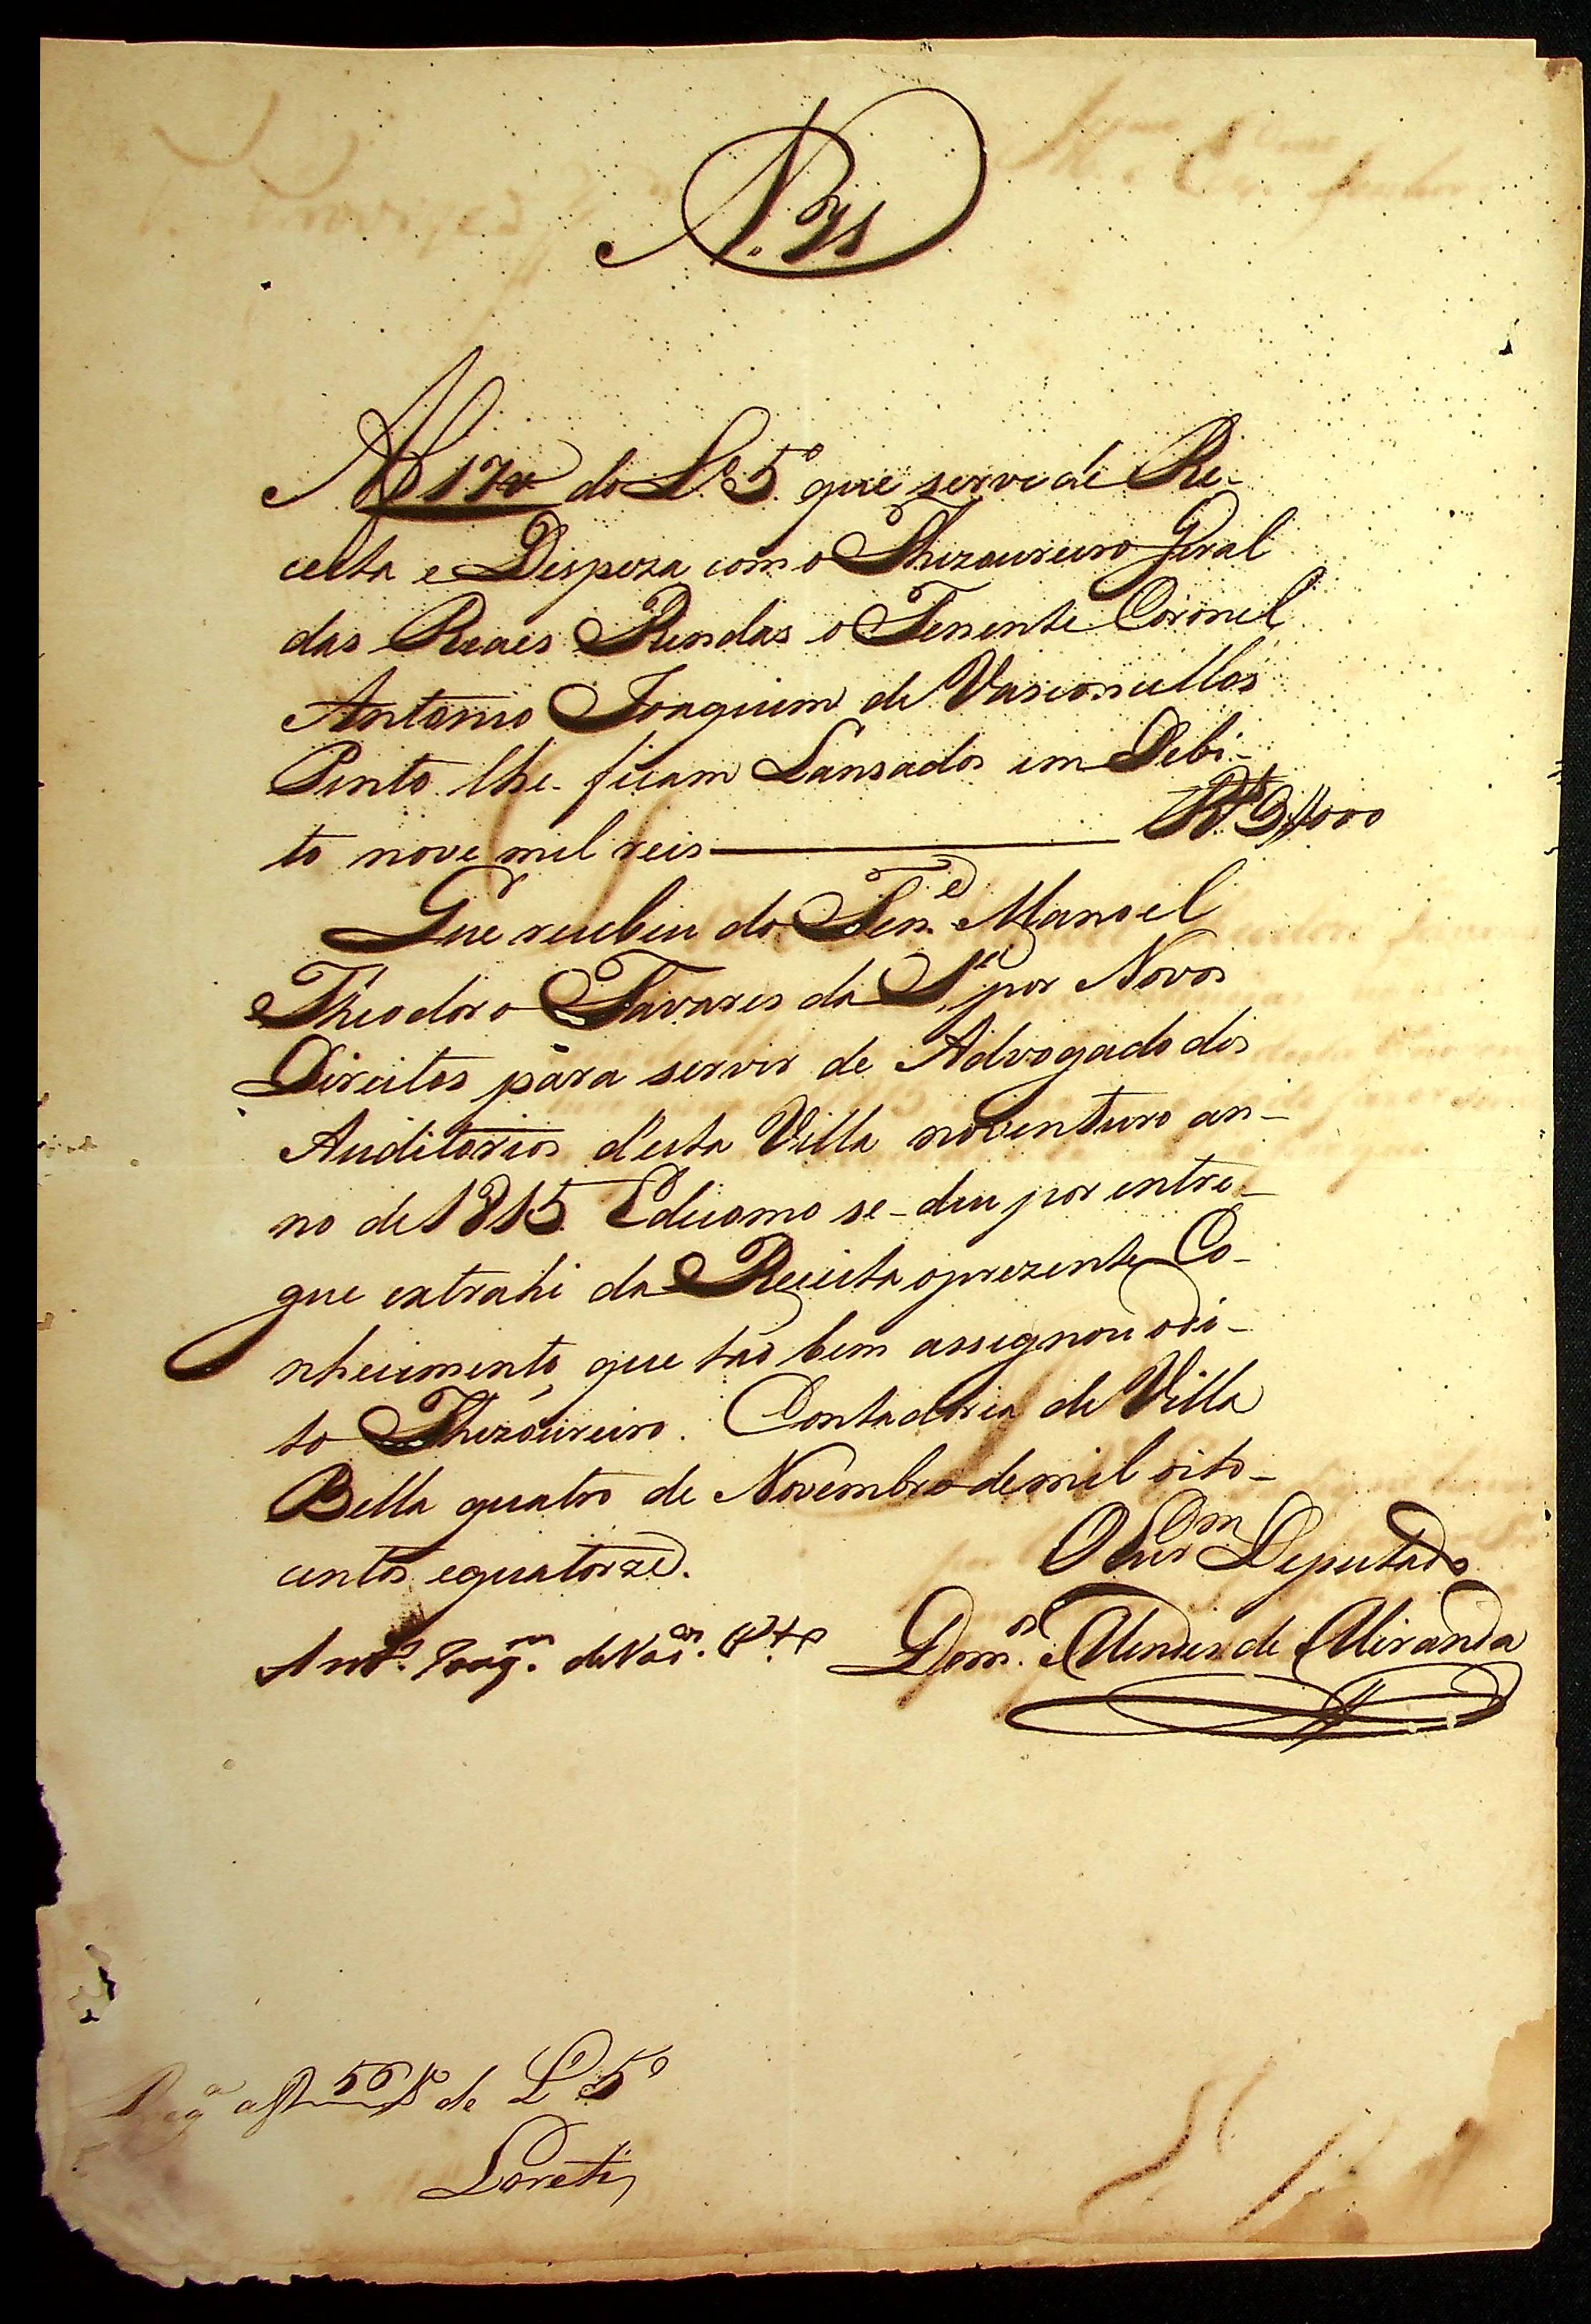 N. 31
Af 17v do L.º 5º que serve de Re-
ceita e Despeza com o Thezoureiro Geral
das Reaes Rendas o Tenente Coronel
Antonio Joaquim de Vasconcellos
Pinto lhe ficam Lansados em Debi-
to nove mil reis ——— Rs 9//000
Que recebeu do Ten.e Manoel
Theodoro Tavares da S.ª por Novos
Direitos para servir de Advogado dos
Auditorios d'esta Villa no venturo an-
no de 1815. E de como se-deu por entre-
gue extrahi da Receita o prezente Co-
nhecimento, que táo bem assignou o di-
to Thezoureiro. Contadoria de Villa
Bella quatro de Novembro de mil oito-
centos e quatorze.
O Escr.am Deputado
Ant.º Joaq.m de Vas.os P.to Dom.os Mendes de Miranda
Reg.ª a f 56 v de L.º 5º
Loreti